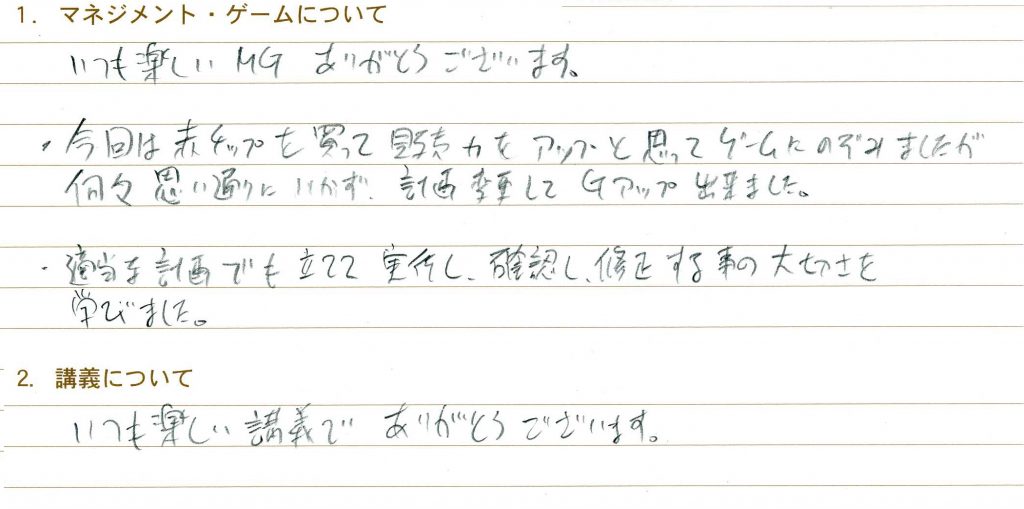 1. マネジメント・ゲームについて
いつも楽しいMG ありがとうございます。
・今回は赤チップを買って販売力をアップと思ってゲームにのぞみましたが
何々思い通りにいかず、計画変更してGアップ出来ました。
・適当な計画でも立てて実行し、確認し、修正する事の大切さを
学びました。
2. 講義について
いつも楽しい講義で ありがとうございます。